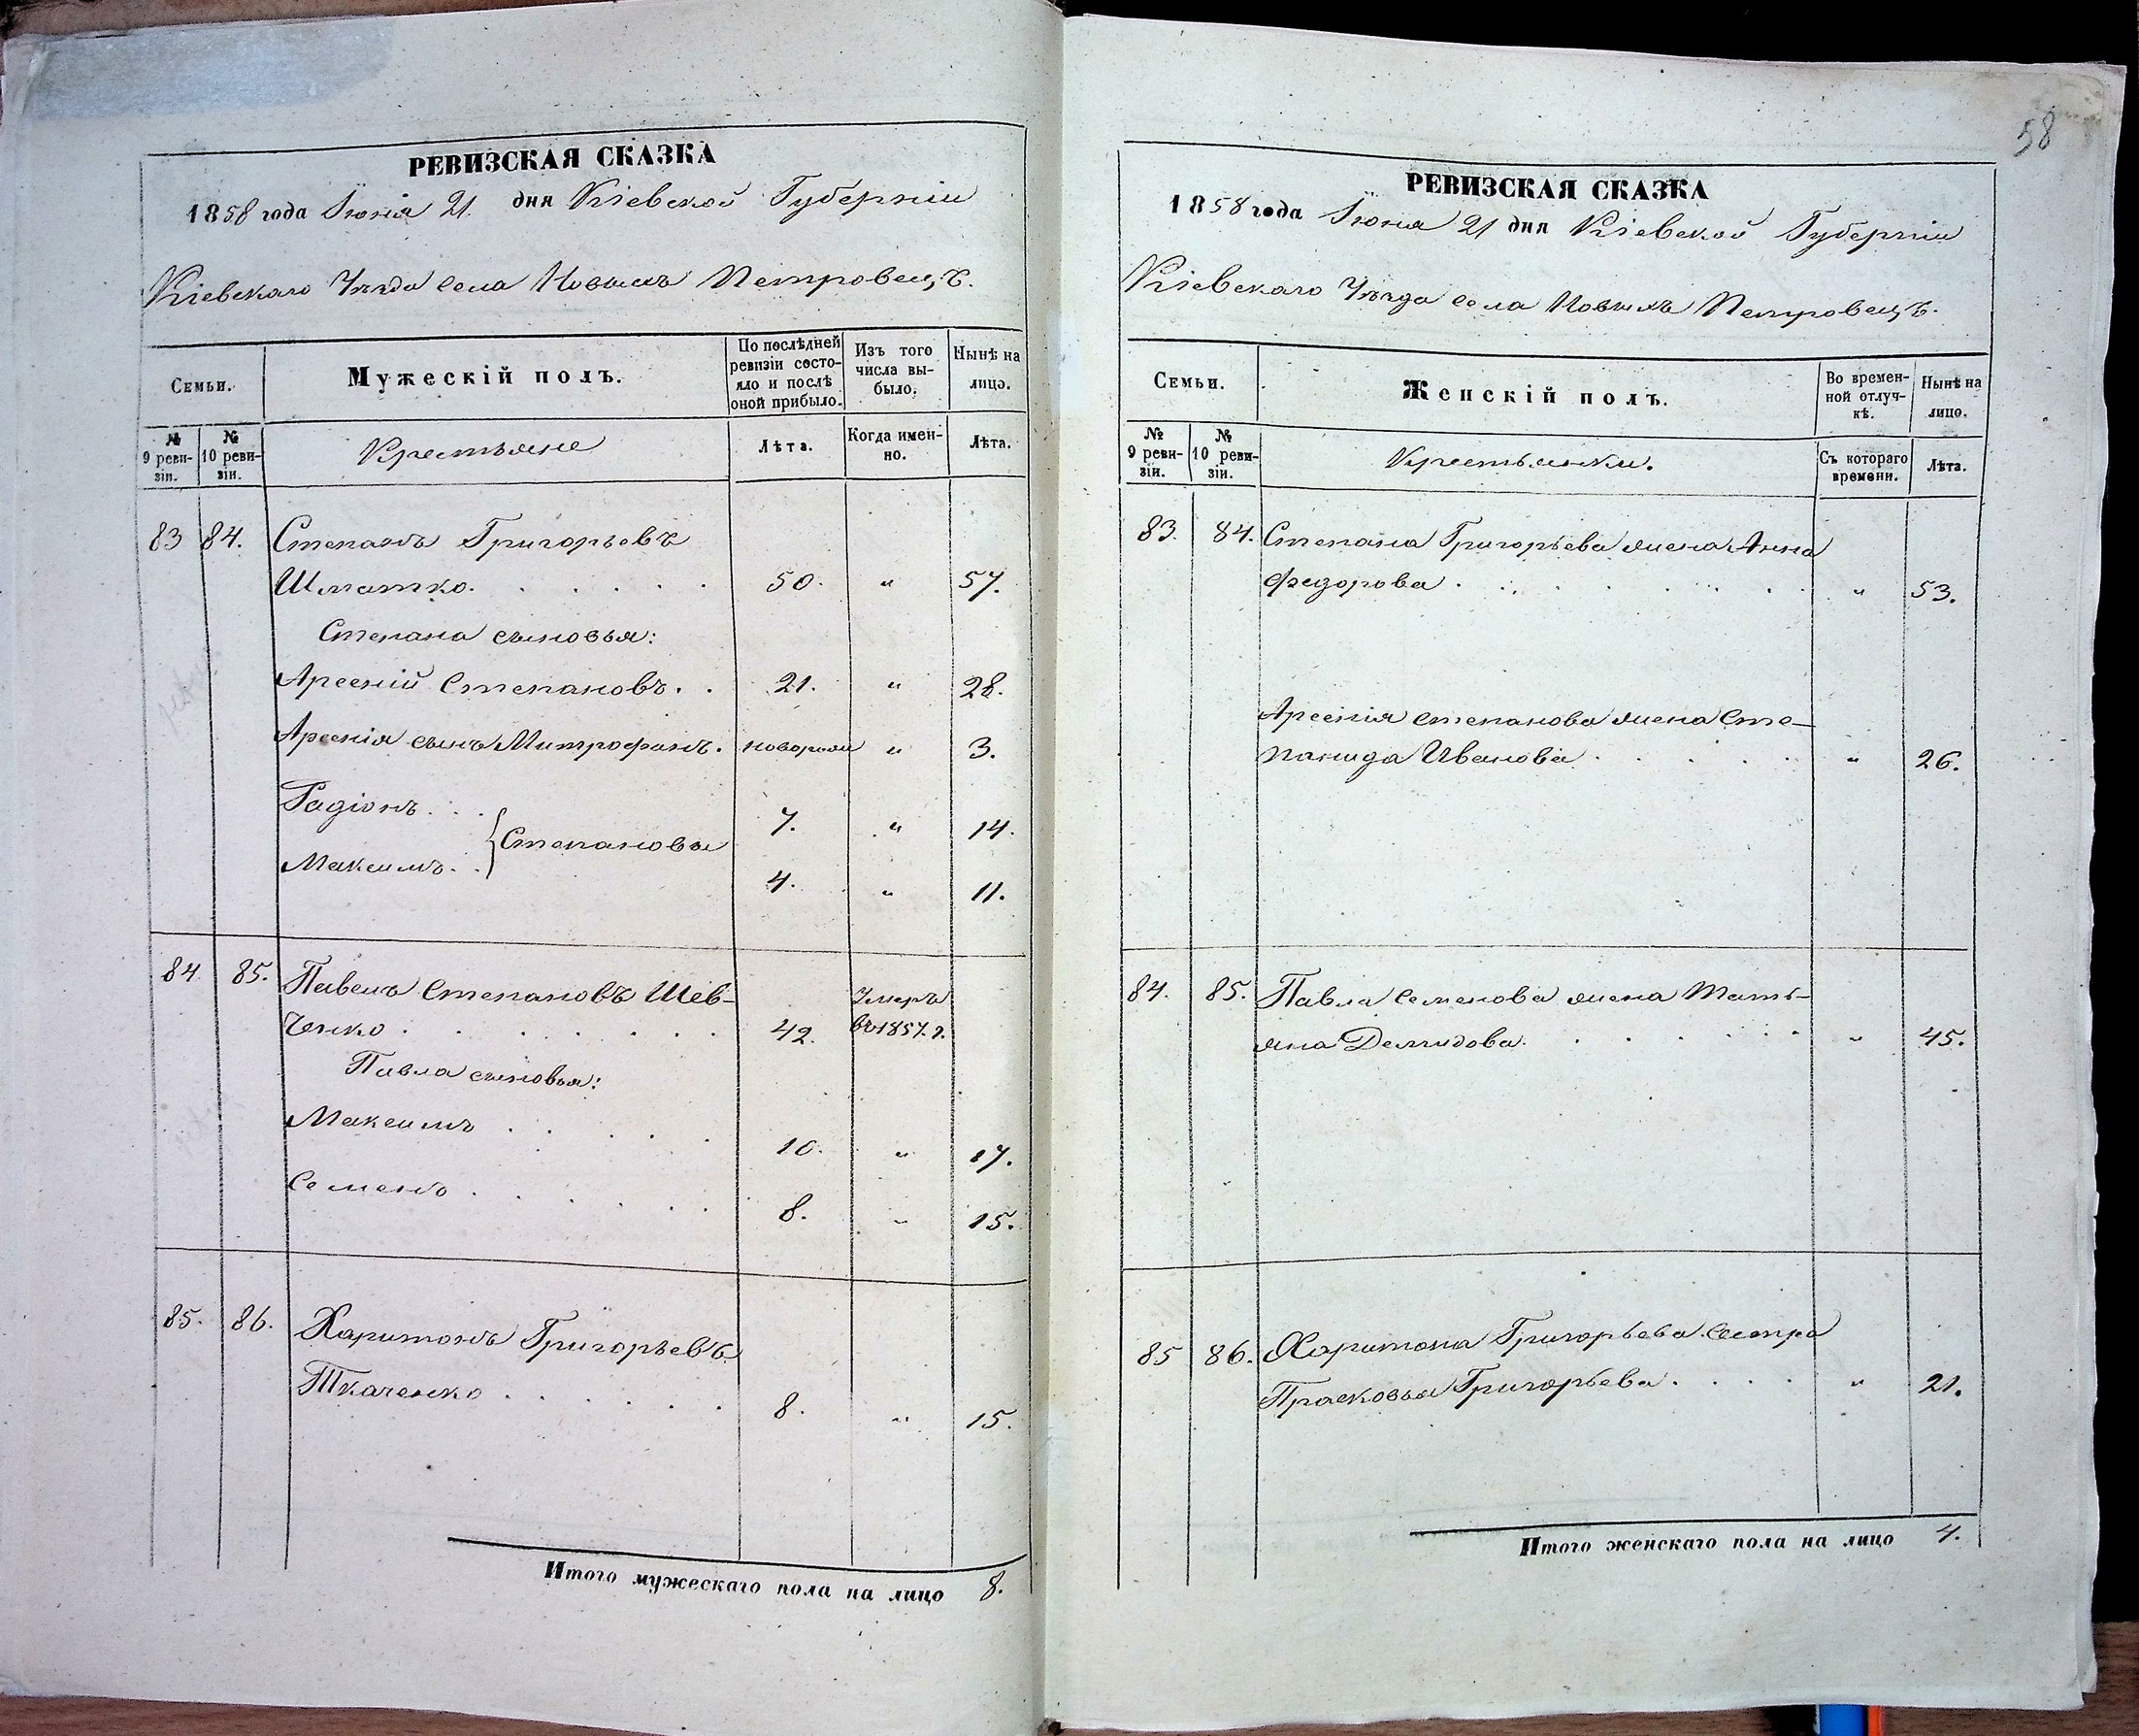 РЕВИЗСКАЯ СКАЗКА
1858 года Іюня 21. дня Кіевской Губерніи
Кіевскаго Уѣзда села Новыхъ Петровецъ.
Семьи.
Мужескій полъ.
По послѣдней ревизіи состояло и послѣ оной прибыло.
Изъ того числа выбыло.
Нынѣ на лицо.
№ 9 ревизіи.
№ 10 ревизіи.
Крестьяне
Лѣта.
Когда именно.
Лѣта.
83 84. Степанъ Григорьевъ
Шматко. 50. " 57.
Степана сыновья:
Арсеній Степановъ. 21. " 28.
Арсенія сынъ Митрофанъ. новорожд " 3.
Радіонъ 7. " 14.
{Степановы
Максимъ. 4. " 11.
84. 85. Павелъ Степановъ Шев-
ченко 42. Умеръ въ 1857. г.
Павла сыновья:
Максимъ 10. " 17.
Семенъ 8. " 15.
85. 86. Харитонъ Григорьевъ
Ткаченко 8. " 15.
Итого мужескаго пола на лицо 8.
58
РЕВИЗСКАЯ СКАЗКА
1858 года Іюня 21 дня Кіевской Губерніи
Кіевскаго Уѣзда села Новыхъ Петровецъ.
Семьи.
Женскій полъ.
Во временной отлучкѣ.
Нынѣ на лицо.
№ 9 ревизіи.
№ 10 ревизіи.
Крестьянки.
Съ котораго времени.
Лѣта.
83. 84. Степана Григорьева жена Анна
Федорова " 53.
Арсенія Степанова жена Сте-
панида Иванова " 26.
84. 85. Павла Семенова жена Тать-
яна Демидова. " 45.
85 86. Харитона Григорьева сестра
Прасковья Григорьева. " 21.
Итого женскаго пола на лицо 4.